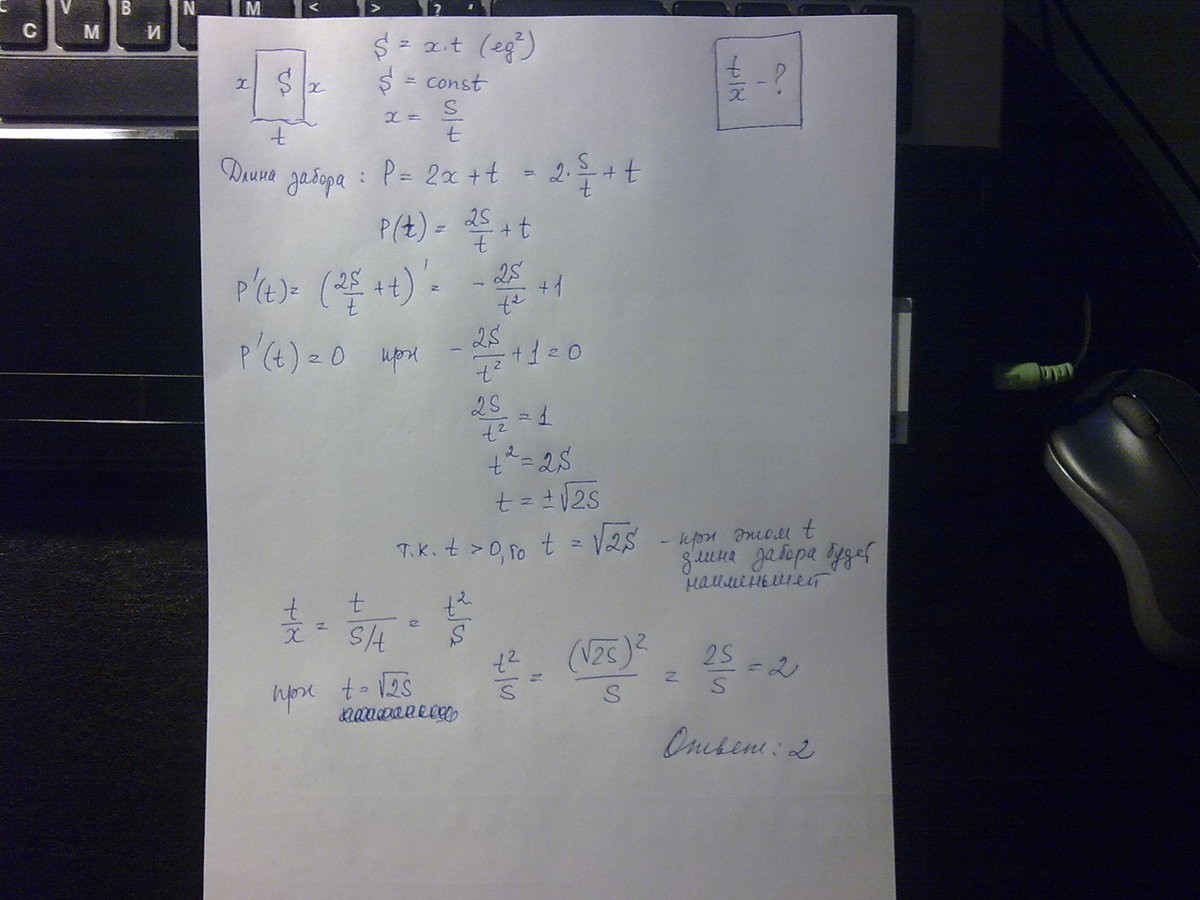 C V B N M < > ?
С М И ,
S = x·t (eg²)
x S x
t
S = const
x = S/t
t/x - ?
Длина забора: P = 2x + t = 2·S/t + t
P(t) = 2S/t + t
P'(t) = (2S/t + t)' = -2S/t² + 1
P'(t) = 0 при -2S/t² + 1 = 0
2S/t² = 1
t² = 2S
t = ±√2S
т.к. t > 0, то t = √2S - при этом t
длина забора будет
наименьшей
t/x = t/S/t = t²/S
при t = √2S t²/S = (√2S)²/S = 2S/S = 2
Ответ: 2